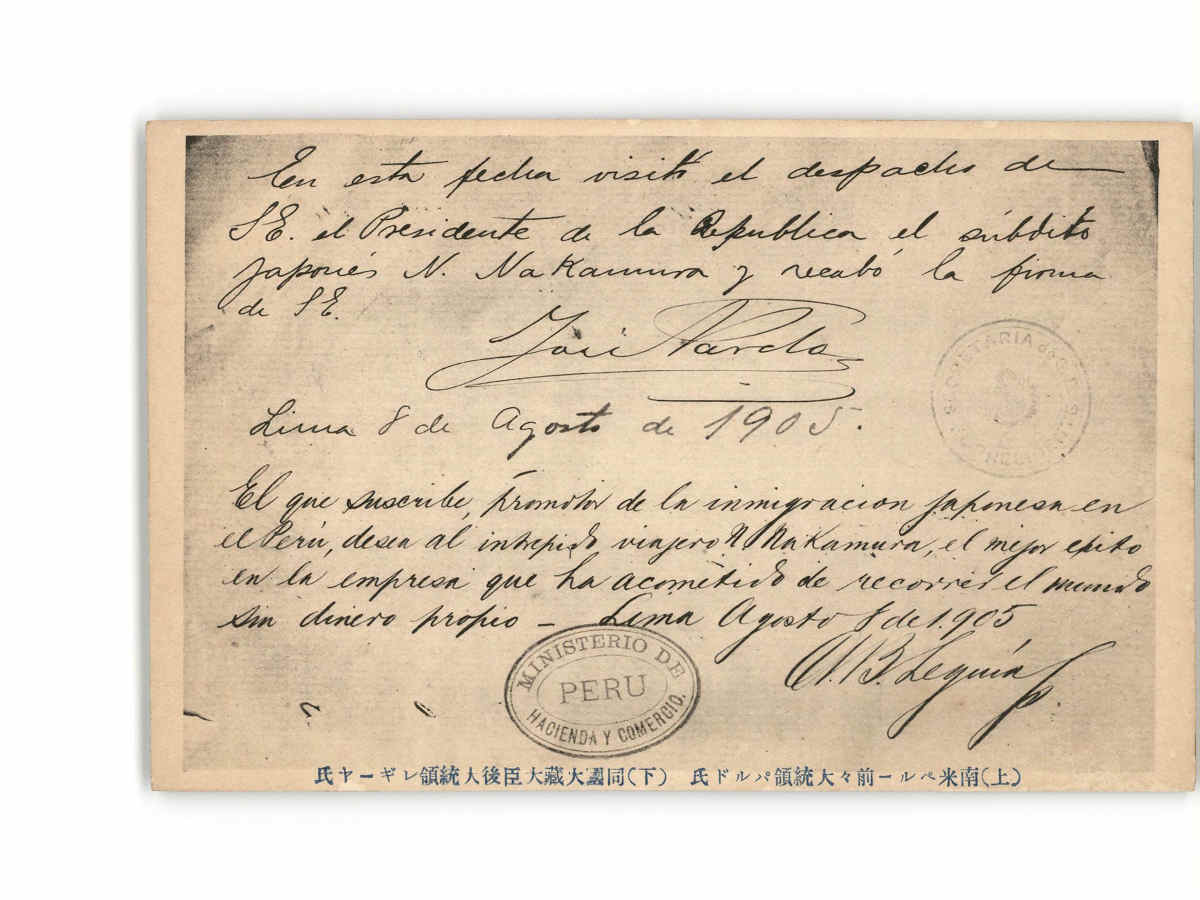 En esta fecha visitó el despacho de
S E. el Presidente de la Republica el súbdito
japonés N. Nakamura y recabó la firma
de S E.
José Pardo
SECRETARIA de S. E.
Lima 8 de Agosto de 1905.
El que suscribe, promotor de la inmigracion japonesa en
el Perú, desea al intrepido viajero N Nakamura, el mejor exito
en la empresa que ha acometido de recorrer el mundo
sin dinero propio – Lima Agosto 8 de 1905
A. B. Leguía
MINISTERIO DE
PERU
HACIENDA Y COMERCIO.
(上)南米ペルー前々大統領パルド氏 (下)同國大藏大臣後大統領レギーヤ氏